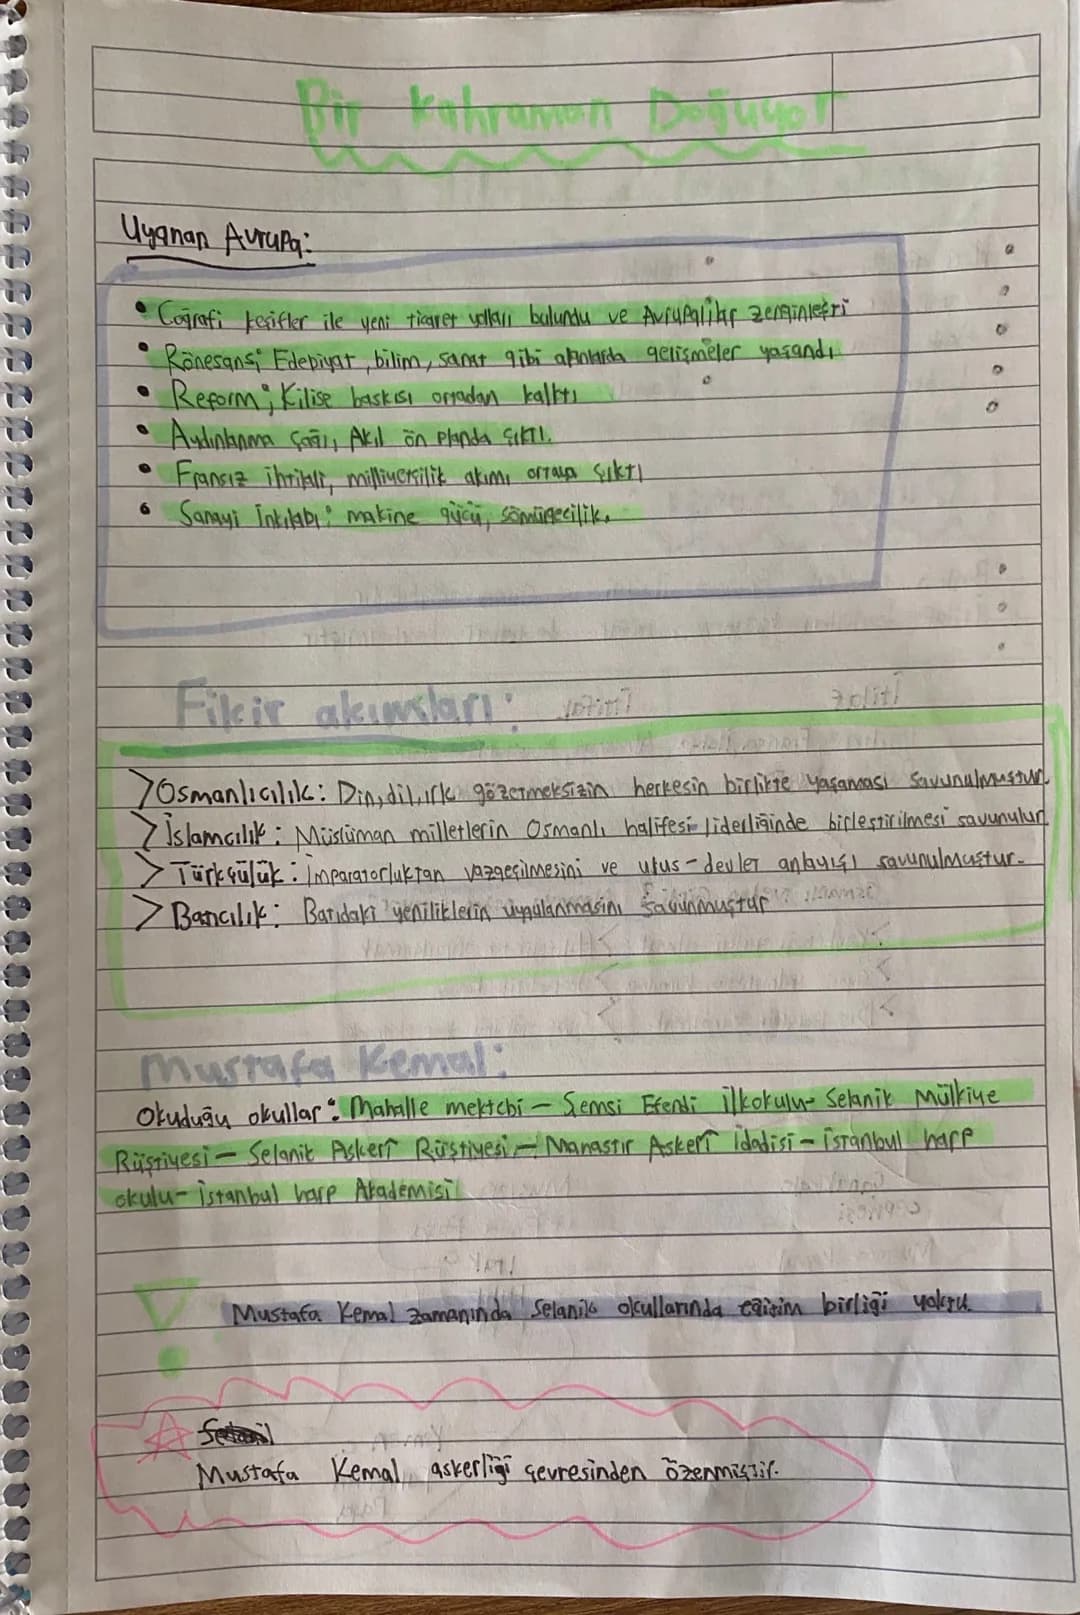 Bir Kahraman Doğuyor
Uyanan Avrupa:
• Coğrafi keşifler ile yeni ticaret yolları bulundu ve Avrupalılar zenginleşti
• Rönesans; Edebiyat, bilim, sanat gibi alanlarda gelişmeler yaşandı
• Reform; Kilise baskısı ortadan kalktı
• Aydınlanma çağı, Akıl ön planda çıktı.
• Fransız ihtilali, milliyetçilik akımı ortaya çıktı
• Sanayi İnkılabı: makine gücü, sömürgecilik.
Fikir akımları:
>Osmanlıcılık: Din, dil, ırk gözetmeksizin herkesin birlikte yaşaması savunulmuştur.
>İslamcılık: Müslüman milletlerin Osmanlı halifesi liderliğinde birleştirilmesi savunulur.
>Türkçülük: İmparatorluktan vazgeçilmesini ve ulus-devlet anlayışı savunulmuştur.
>Batıcılık: Batıdaki yeniliklerin uygulanmasını savunmuştur
Mustafa Kemal:
Okuduğu okullar: Mahalle mektebi - Şemsi Efendi ilkokulu- Selanik Mülkiye
Rüştiyesi - Selanik Askerî Rüştiyesi - Manastır Askerî idadisi - istanbul harp
okulu- istanbul harp Akademisi
Mustafa Kemal zamanında Selanik okullarında eğitim birliği yoktu.
Mustafa Kemal askerliği çevresinden özenmiştir.